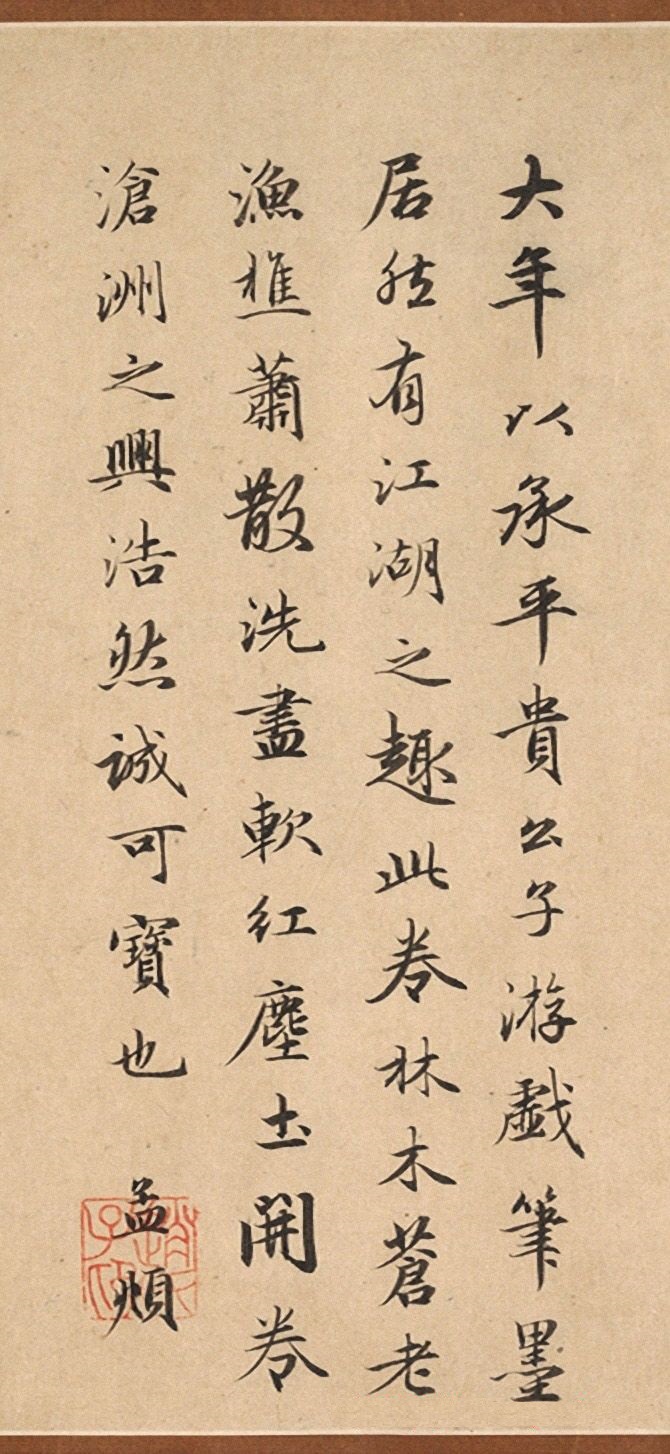 大年以承平貴公子游戲筆墨
居然有江湖之趣此卷林木蒼老
漁樵蕭散洗盡軟紅塵土開卷
滄洲之興浩然誠可寶也 孟頫
趙子昂氏